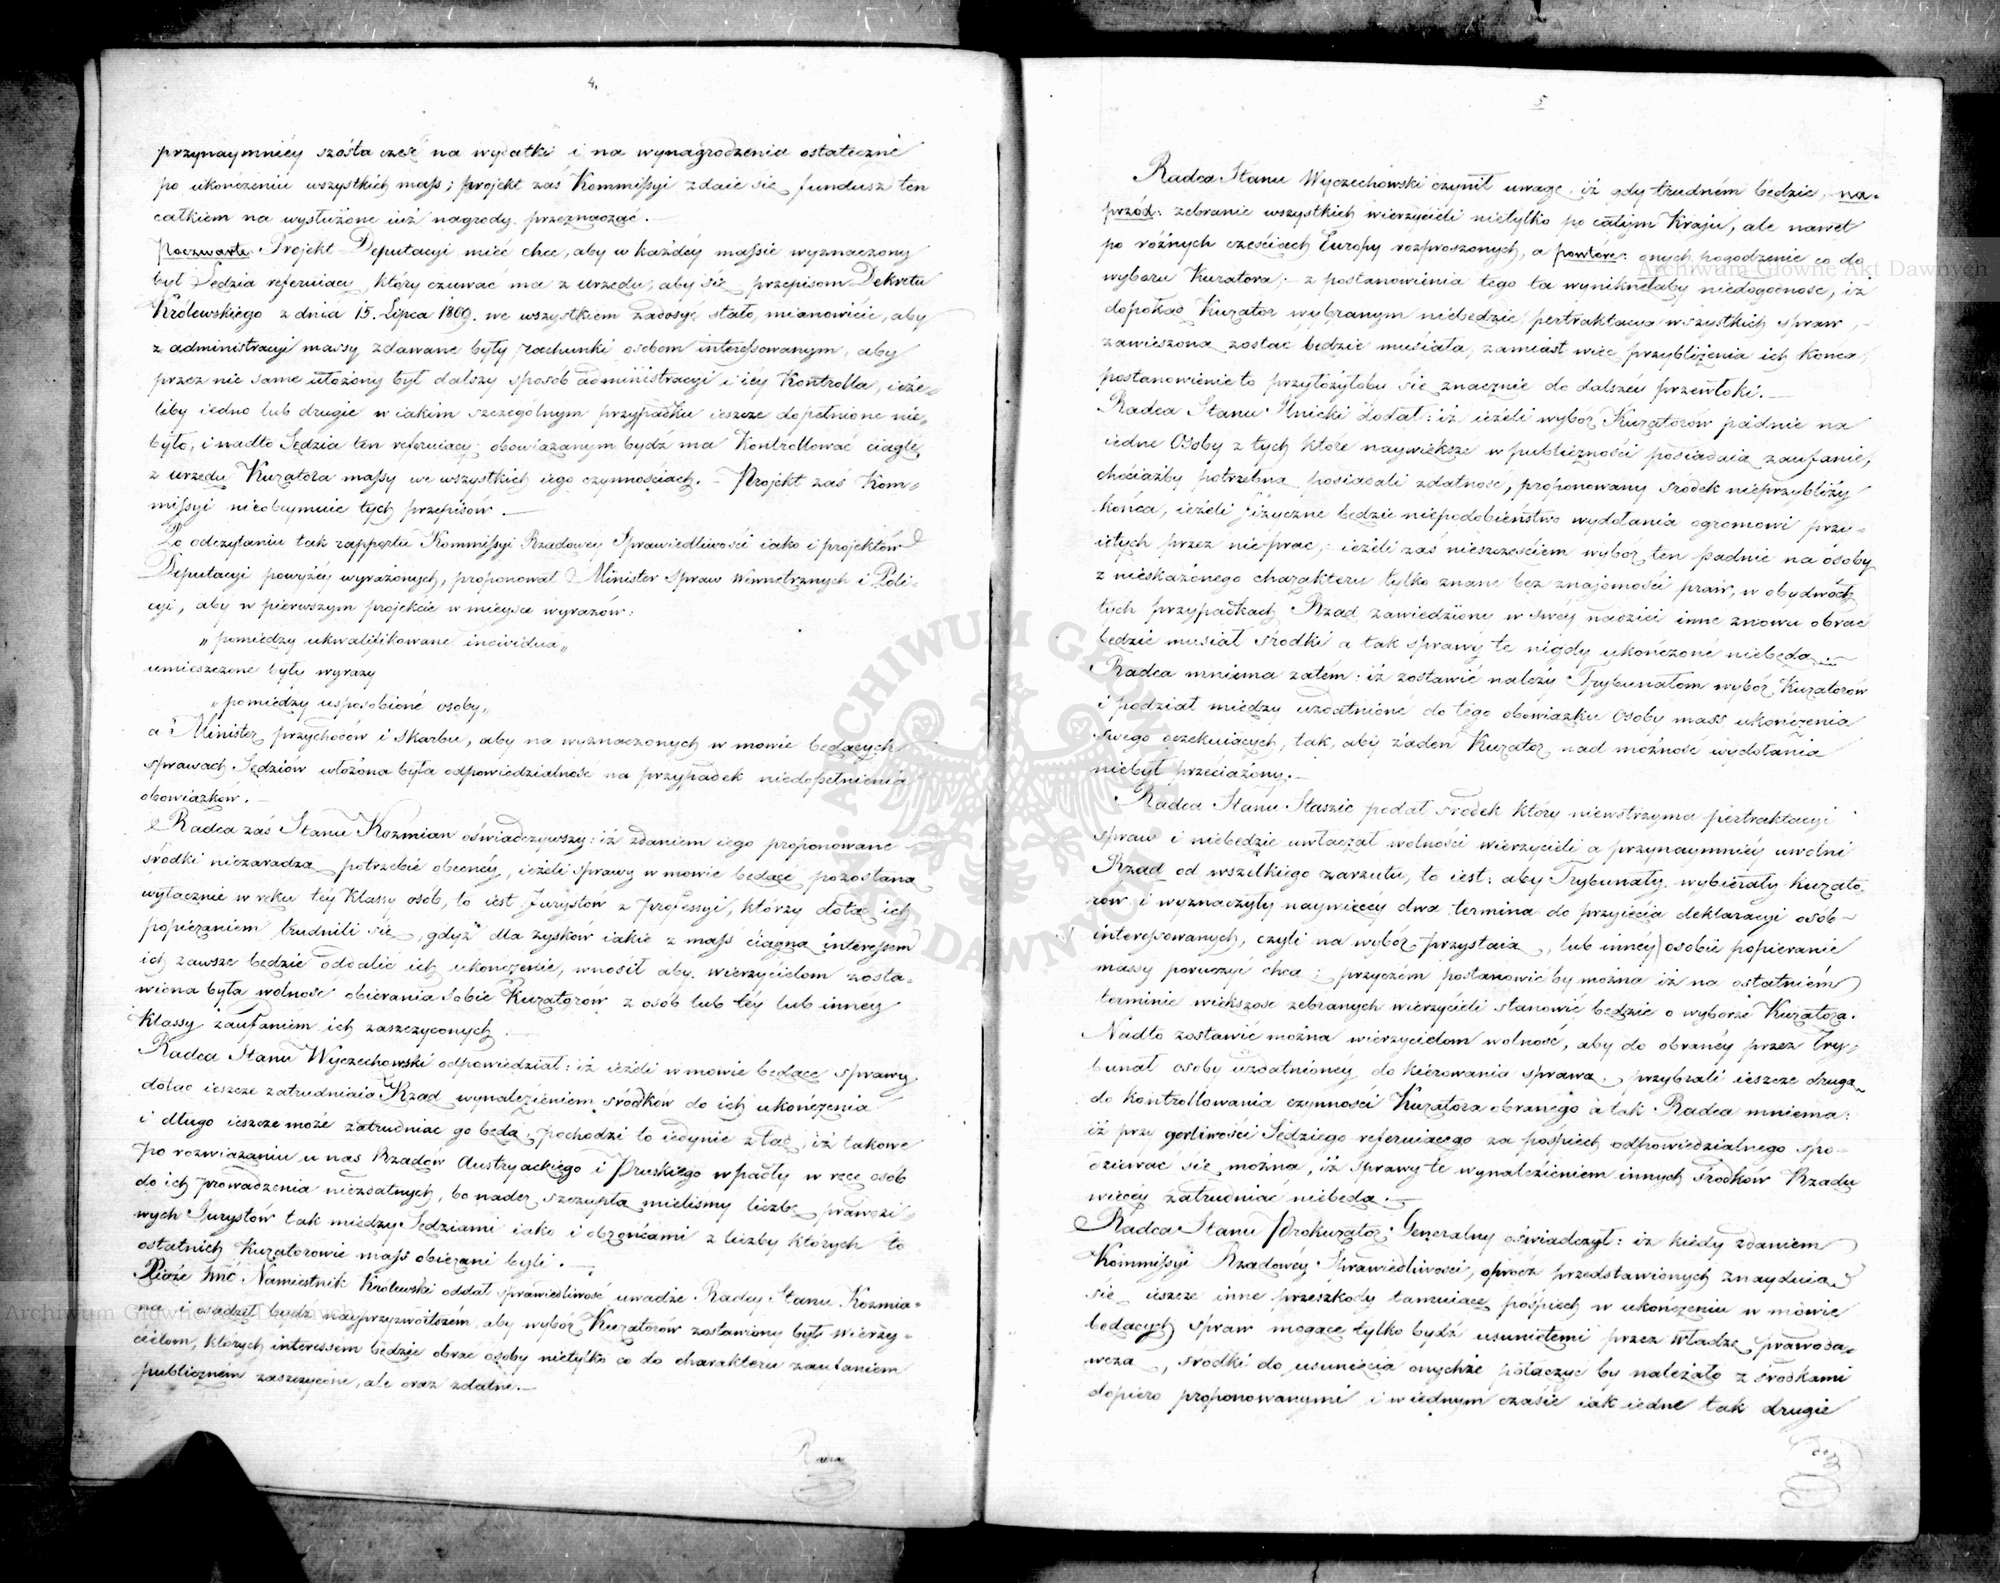 4.
przynaymniéy szósta cześć na wydatki i na wynagrodzenia ostateczne
po ukończeniu wszystkich mass; projekt zaś Kommissyi zdaie się fundusz ten
całkiem na wysłużone iuż nagrody przeznaczać.—
Poczwarte Projekt Deputacyi mieć chce, aby w każdéy massie wyznaczony
był Sędzia referuiący, który czuwać ma z urzędu, aby się przepisom Dekretu
Królewskiego z dnia 15. Lipca 1809. we wszystkiem zadosyć stało, mianowicie, aby
z administracyi massy zdawane były rachunki osobom interessowanym, aby
przez nie same ułożony był dalszy sposób administracyi i iéy Kontrolla, ieże-
liby iedno lub drugie w iakim szczególnym przypadku ieszcze dopełnione nie-
było, i nadto Sędzia ten referuiący obowiązanym bydź ma Kontrollować ciągle
z urzędu Kuratora massy we wszystkich iego czynnościach.— Projekt zaś Kom-
missyi nieobeymuie tych przepisów.—
Po odczytaniu tak rapportu Kommissyi Rządowéy Sprawiedliwości iako i projektów
Deputacyi powyżéy wyrażonych, proponował Minister Spraw Wewnętrznych i Poli-
cyi, aby w pierwszym projekcie w mieysce wyrazów:
„pomiędzy ukwalifikowane individua„
umieszczone były wyrazy
„pomiędzy usposobioné osoby„
a Minister przychodów i Skarbu, aby na wyznaczonych w mowie będących
sprawach Sędziów włożona była odpowiedzialność na przypadek niedopełnienia
obowiązków.—
Radca zaś Stanu Kozmian oświadczywszy: iż zdaniem iego proponowane
środki niezaradzą potrzebie obecnéy, ieżeli sprawy w mowie będące pozostaną
wyłącznie w ręku téy Klassy osób, to iest Jurystów z professyi, którzy dotąd ich
popieraniem trudnili się, gdyż dla zysków iakie z mass ciągną interessem
ich zawsze będzie oddalić ich ukończenie, wnosił aby wierzycielom zosta-
wiona była wolność obierania sobie Kuratorów z osób lub téy lub innéy
Klassy zaufaniem ich zaszczyconych.
Radca Stanu Wyczechowski odpowiedział: iż ieżeli w mowie będące sprawy
dotąd ieszcze zatrudniaią Rząd wynalezieniem środków do ich ukończenia
i długo ieszcze może zatrudniać go będą, pochodzi to iedynie ztąd, iż takowe
po rozwiązaniu u nas Rządów Austryackiego i Pruskiego wpadły w ręce osób
do ich prowadzenia niezdatnych, bo nader szczupłą mieliśmy liczbę prawdzi-
wych Jurystów tak między Sędziami iako i obrońcami z liczby których to
ostatnich Kuratorowie mass obierani byli.—
Xiąże Jmć Namiestnik Królewski oddał sprawiedliwość uwadze Radcy Stanu Kozmia-
na i osądził bydź nayprzyzwoitszém, aby wybór Kuratorów zostawiony był wierzy-
cielom, których interessem będzie obrać osoby nietylko co do charakteru zaufaniem
publiczném zaszczycone, ale oraz zdatne.—
Radca
5
Radca Stanu Wyczechowski czynił uwagę, iż gdy trudném będzie, na-
przód: zebranie wszystkich wierzycieli nietylko po całym Kraju, ale nawet
po różnych częściach Europy rozproszonych, a powtóre: onych pogodzenie co do
wyboru Kuratora;— z postanowienia tego ta wyniknęłaby niedogodność, iż
dopokąd Kurator wybranym niebędzie, pertraktacya wszystkich spraw
zawieszoną zostać będzie musiała, zamiast więc przybliżenia ich końca,
postanowienie to przyłożyłoby się znacznie do dalszéy przewłoki.—
Radca Stanu Hnicki dodał: iż ieżeli wybór Kuratorów padnie na
iedne Osoby z tych które naywiększe w publiczności posiadaią zaufanie,
chociażby potrzebną posiadali zdatność, proponowany środek nieprzybliży
końca, ieżeli fizyczne będzie niepodobieństwo wydołania ogromowi przy-
iętych przez nie prac; ieżeli zaś nieszczęściem wybór ten padnie na osoby
z nieskażonego charakteru tylko znane bez znajomości praw, w obydwóch
tych przypadkach Rząd zawiedziony w swéy nadziei inne znowu obrać
będzie musiał środki a tak sprawy te nigdy ukończone niebędą.—
Radca mniema zatém: iż zostawić należy Trybunałom wybór Kuratorów
i podział między uzdatnione do tego obowiązku osoby mass ukończenia
swego oczekuiących, tak, aby żaden Kurator nad możność wydołania
niebył przeciążony.—
Radca Stanu Staszic podał środek który niewstrzyma pertraktacyi
spraw i niebędzie uwłaczał wolności wierzycieli a przynaymniéy uwolni
Rząd od wszelkiego zarzutu, to iest: aby Trybunały wybierały kurato-
rów i wyznaczyły naywięcéy dwa termina do przyięcia deklaracyi osób
interessowanych, czyli na wybór przystaią, lub innéy osobie popieranie
massy poruczyć chcą; przyczém postanowić by można iż na ostatniém
terminie większość zebranych wierzycieli stanowić będzie o wyborze Kuratora.
Nadto zostawić można wierzycielom wolność, aby do obranéy przez Try-
bunał osoby uzdatnionéy do kierowania sprawą, przybrali ieszcze drugą
do kontrollowania czynności Kuratora obranego a tak Radca mniema:
iż przy gorliwości Sędziego referuiącego za pośpiech odpowiedzialnego spo-
dziewać się można, iż sprawy te wynalezieniem innych środków Rządu
więcéy zatrudniać niebędą.—
Radca Stanu Prokurator Generalny oświadczył: iż kiedy zdaniem
Kommissyi Rządowéy Sprawiedliwości, oprócz przedstawionych znayduią
się ieszcze inne przeszkody tamuiące pośpiech w ukończeniu w mowie
będących spraw mogące tylko bydź usuniętemi przez Władzę prawoda-
wczą, środki do usunięcia onychże połączyć by należało z środkami
dopiero proponowanymi i w iednym czasie iak iedne tak drugie
Archiwum Główne Akt Dawnych
Archiwum Główne Akt Dawnych
ARCHIWUM GŁÓWNE AKT DAWNYCH